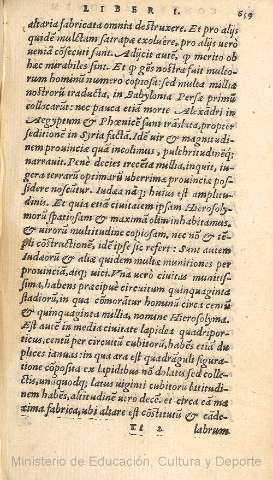 LIBER I. 659
altaria fabricata omnia destruxere. Et pro alijs
quidē mulctam satrapæ exoluêre, pro alijs verò
veniā cōsecuti sunt. Adijcit autē, ꝙ meritò ob
hæc mirabiles sint. Et ꝙ gēs nostra fuit multo-
rum hominū numero copiosa: sed multa millia
nostrorū traducta, in Babylonia Persæ primū
collocarūt: nec pauca etiā morte Alexādri in
Aegyptum & Phœnicē sunt trāslata, propter
seditionē in Syria factā. Idē vir & magnitudi-
nem prouinciæ quā incolimus, pulchritudineq́;
narrauit. Penè decies trecēta millia, inquit, iu-
gera terrarū optimarū vberrimæ prouinciæ pos-
sidere noscūtur. Iudæa náq; huius est amplitu-
dinis. Et quia etiā ciuitatem ipsam Hierosoly-
morū spatiosam & maximā olim inhabitamus,
& virorū multitudine copiosam, nec nō & tē-
pli cōstructionē, idē ipse sic refert: Sunt autem
Iudæorū & aliæ quidem multæ munitiones per
prouinciā, atq; vici. Vna verò ciuitas munitis-
sima, habens præcipuè circuitum quinquaginta
stadiorū, in qua cōmorātur hominū circa centū
& quinquaginta millia, nomine Hierosolyma.
Est autē in media ciuitate lapidea quadripor-
ticus, centū per circuitū cubitorū, habēs etiā du-
plices ianuas: in qua ara est quadrāguli figura-
tione cōposita ex lapidibus nō dolatis sed colle-
ctis, unūquodq; latus viginti cubitorū latitudi-
nem habēs, altitudinē verò decē. et circa eā ma
xima fabrica, ubi altare est cōstitutū & cāde-
Tt 2 labrum
Ministerio de Educación, Cultura y Deporte